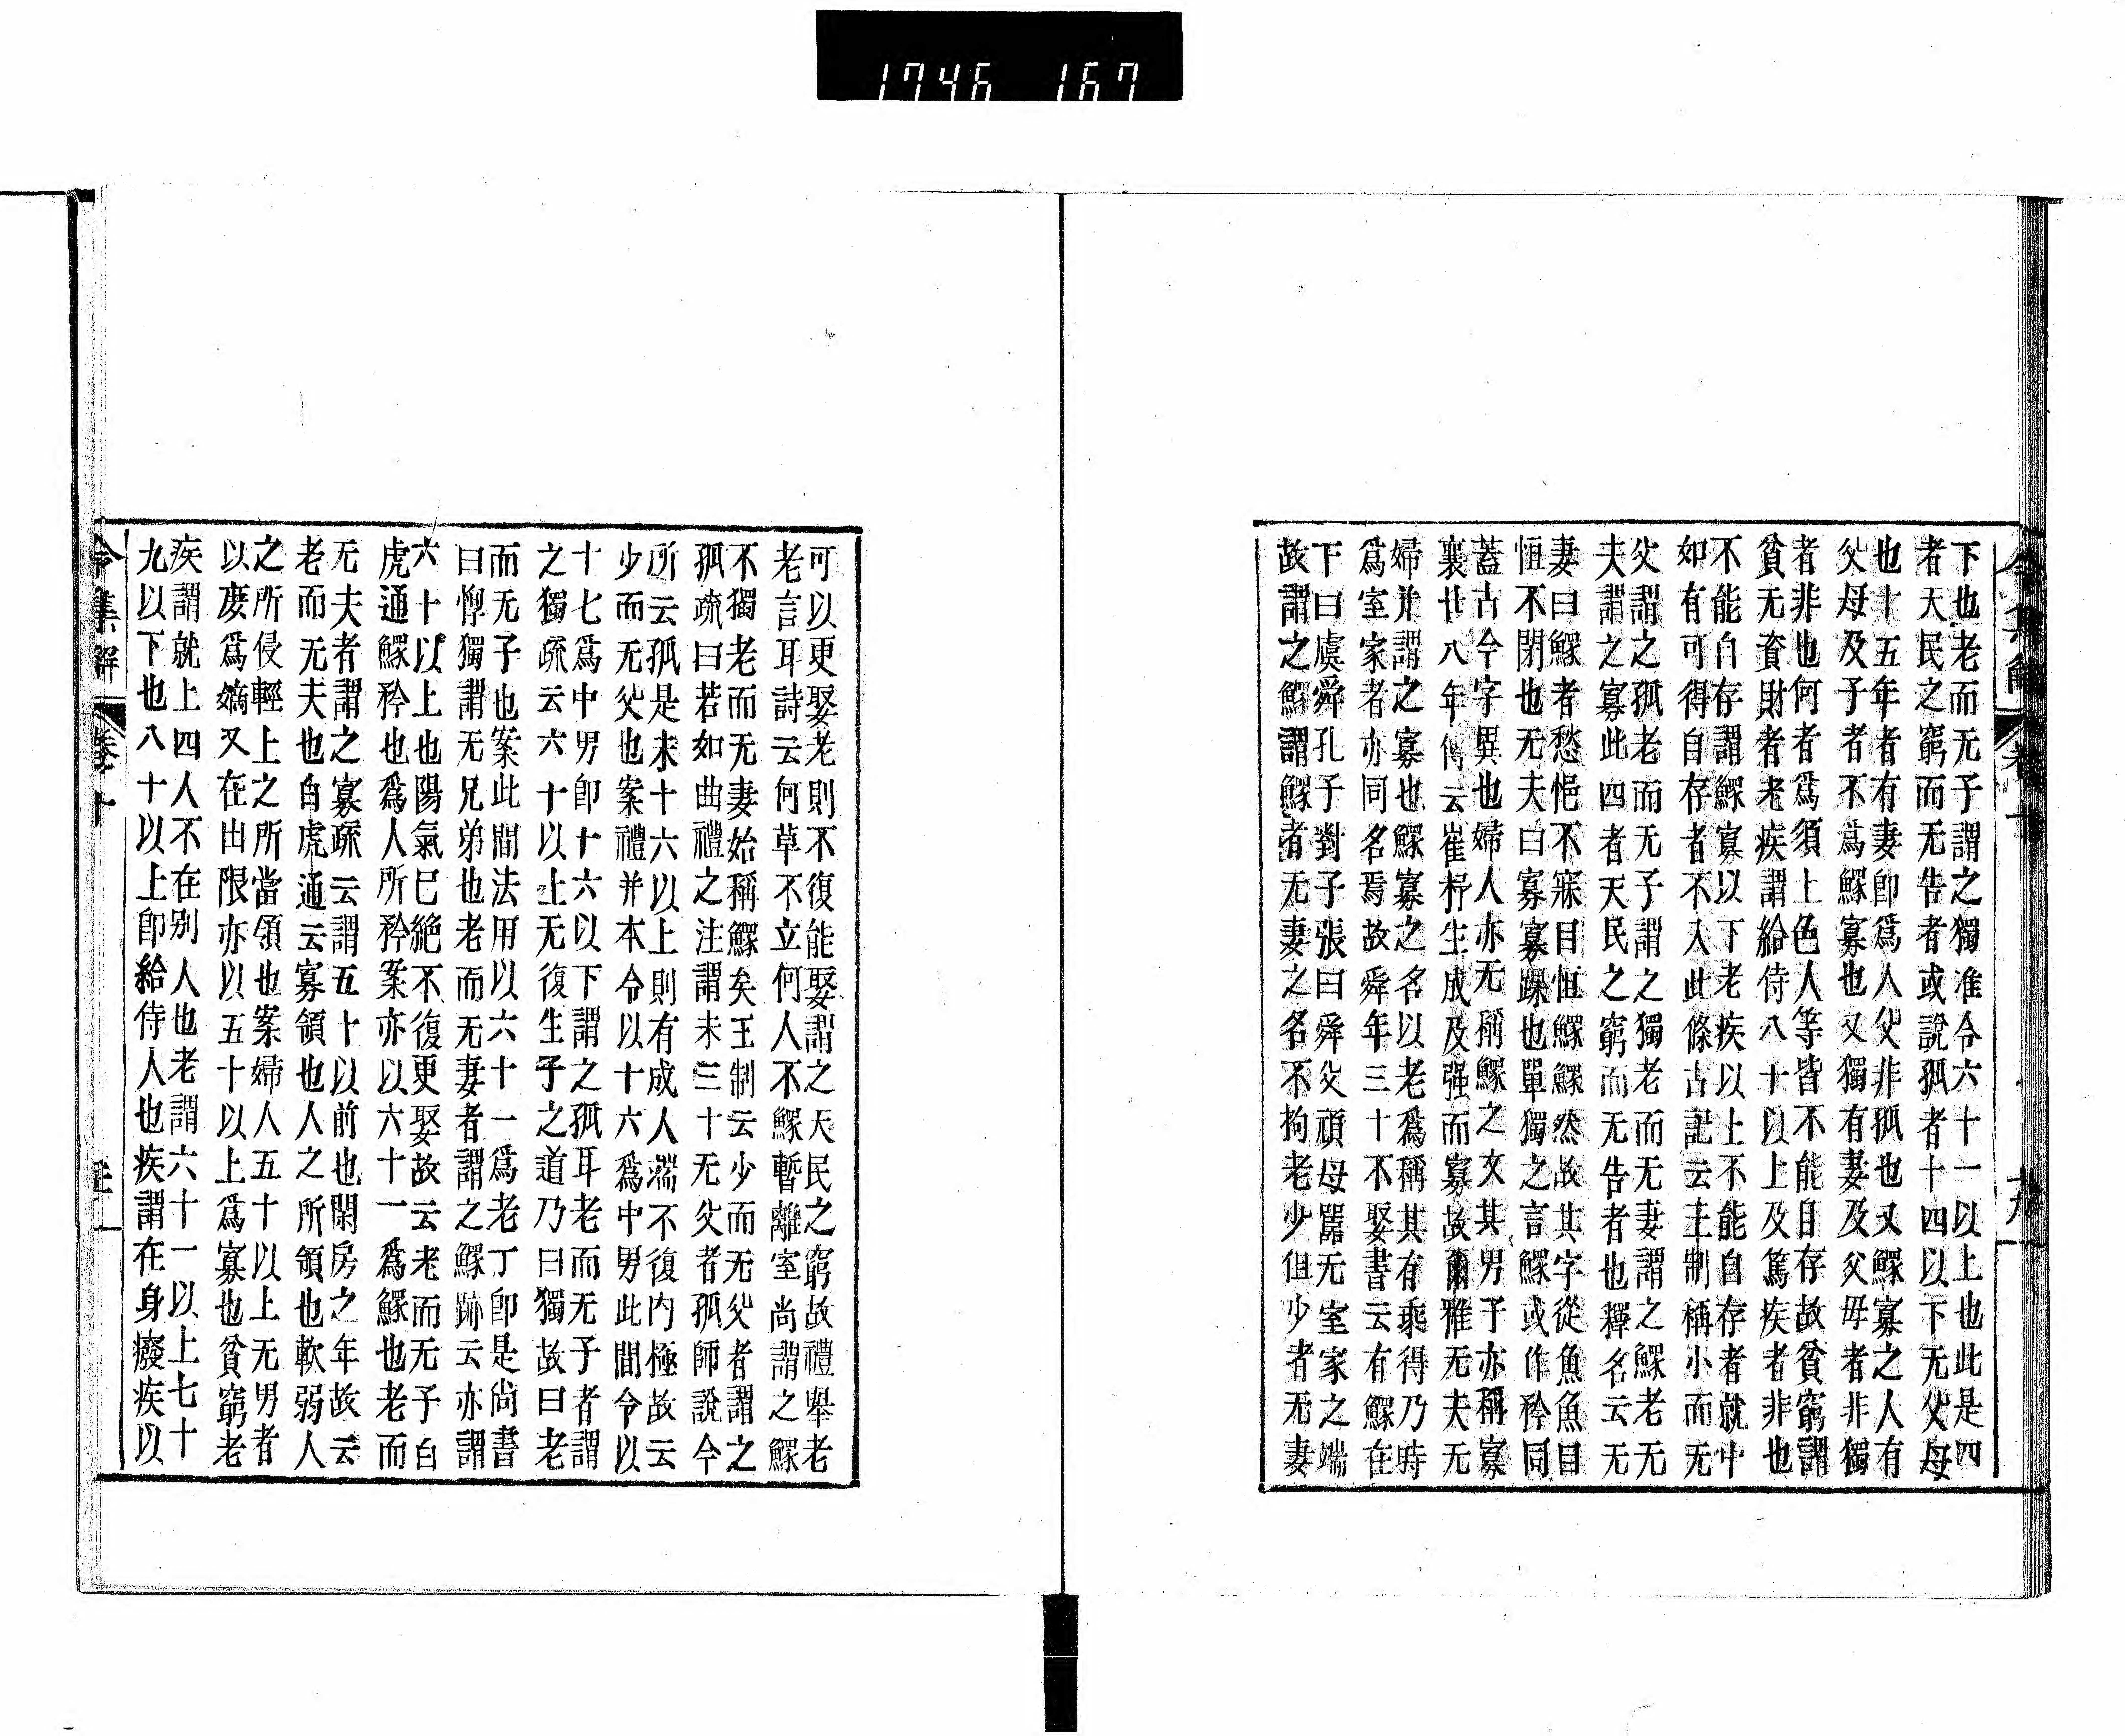 1746 167
令集解 卷十 廿九
下也老而无子謂之獨准令六十一以上也此是四
者天民之窮而无告者或説孤者十四以下无父母
也十五年者有妻卽爲人父非孤也又鰥寡之人有
父母及子者不爲鰥寡也又獨有妻及父母者非獨
者非也何者爲須上色人等皆不能自存故貧窮謂
貧无資財者老疾謂給侍八十以上及篤疾者非也
不能自存謂鰥寡以下老疾以上不能自存者就中
如有可得自存者不入此條古記云王制稱小而无
父謂之孤老而无子謂之獨老而无妻謂之鰥老无
夫謂之寡此四者天民之窮而无告者也釋名云无
妻曰鰥者愁悒不寐目恒鰥鰥然故其字從魚魚目
恒不閉也无夫曰寡寡踝也單獨之言鰥或作矜同
蓋古今字異也婦人亦无稱鰥之文其男子亦稱寡
襄廿八年傳云崔杼生成及强而寡故爾雅无夫无
婦并謂之寡也鰥寡之名以老爲稱其有乘得乃時
爲室家者亦同名焉故舜年三十不娶書云有鰥在
下曰虞舜孔子對子張曰舜父頑母嚚无室家之端
故謂之鰥謂鰥者无妻之名不拘老少但少者无妻
可以更娶老則不復能娶謂之天民之窮故禮舉老
老言耳詩云何草不立何人不鰥暫離室尚謂之鰥
不獨老而无妻始稱鰥矣王制云少而无父者謂之
孤疏曰若如曲禮之注謂未三十无父者孤師說今
所云孤是未十六以上則有成人端不復内極故云
少而无父也案禮并本令以十六爲中男此間令以
十七爲中男卽十六以下謂之孤耳老而无子者謂
之獨疏云六十以上无復生子之道乃曰獨故曰老
而无子也案此間法用以六十一爲老丁卽是尚書
曰惸獨謂无兄弟也老而无妻者謂之鰥跡云亦謂
六十以上也陽氣已絶不復更娶故云老而无子白
虎通鰥矜也爲人所矜案亦以六十一爲鰥也老而
无夫者謂之寡疏云謂五十以前也閑房之年故云
老而无夫也白虎通云寡領也人之所領也軟弱人
之所侵輕上之所當領也案婦人五十以上无男者
以廢爲嫡又在由限亦以五十以上爲寡也貧窮老
疾謂就上四人不在別人也老謂六十一以上七十
九以下也八十以上卽給侍人也疾謂在身癈疾以
令集解 卷十